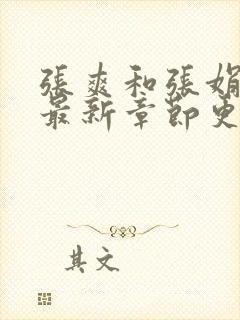 張爽和張娟
最新章節更
其文